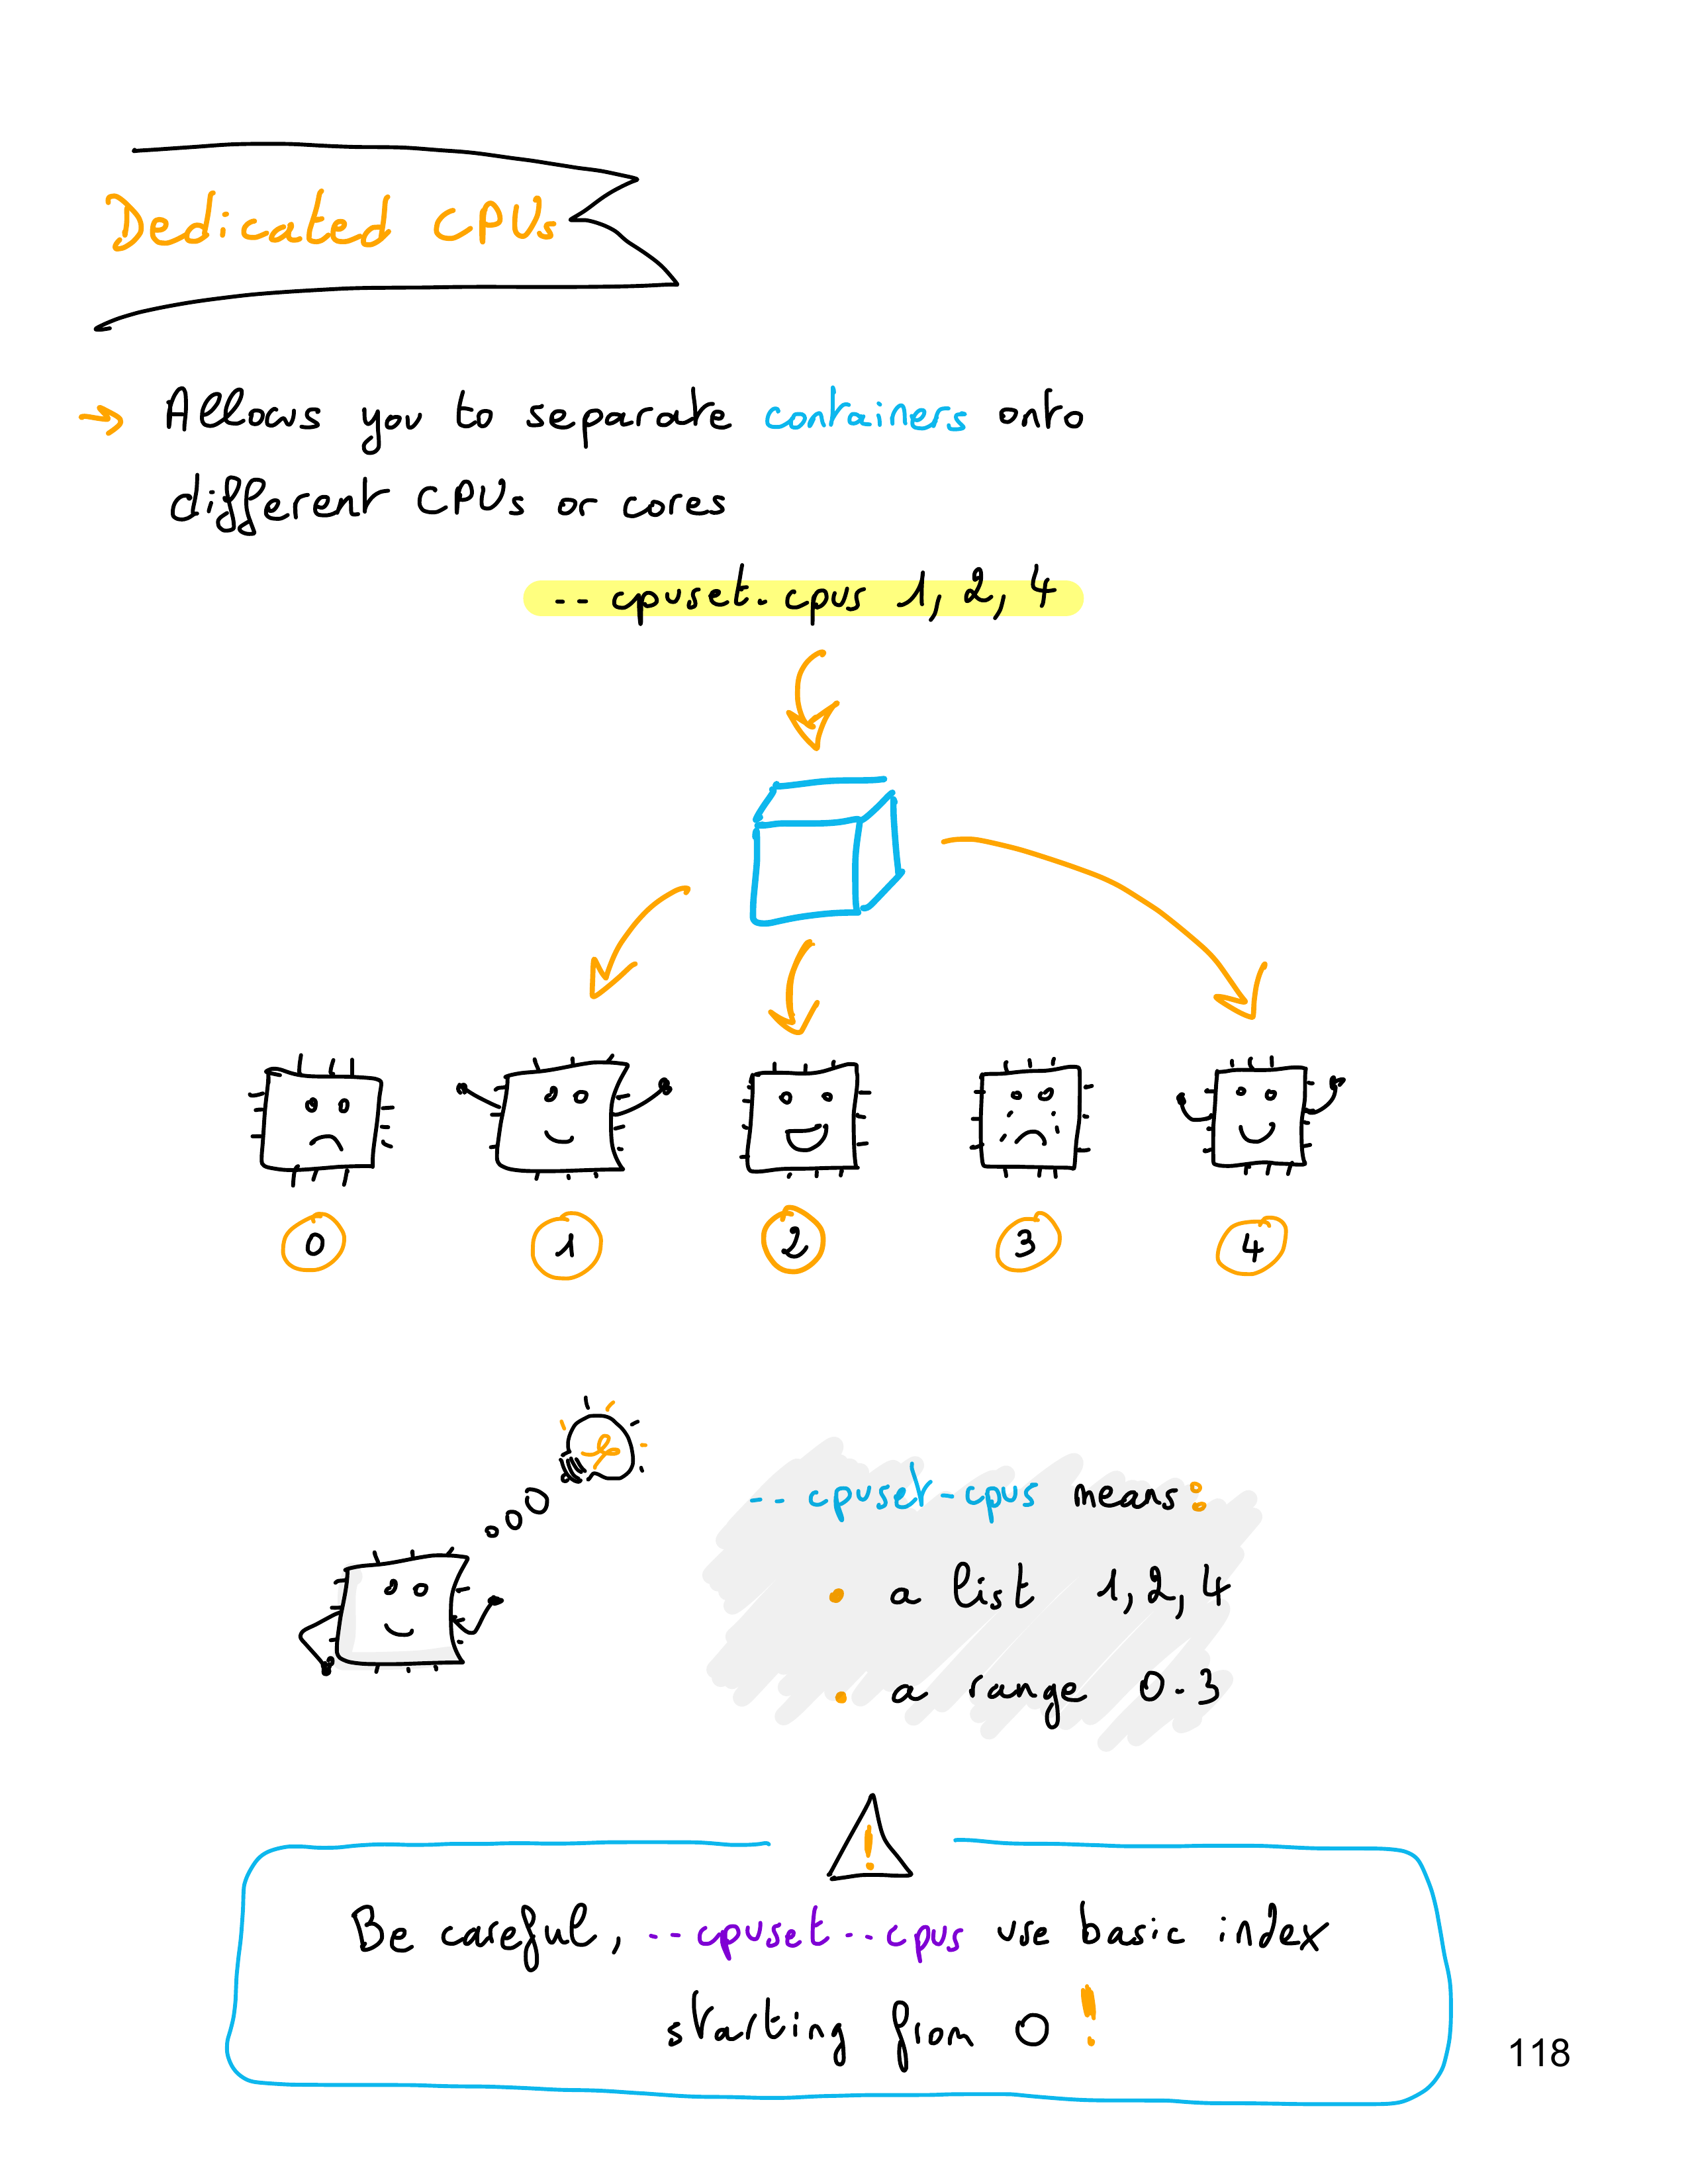 Dedicated CPUs
→ Allows you to separate containers onto
different CPUs or cores
--cpuset-cpus 1, 2, 4
0 1 2 3 4
--cpuset-cpus means:
• a list 1, 2, 4
• a range 0-3
!
Be careful, --cpuset--cpus use basic index
starting from 0 !
118